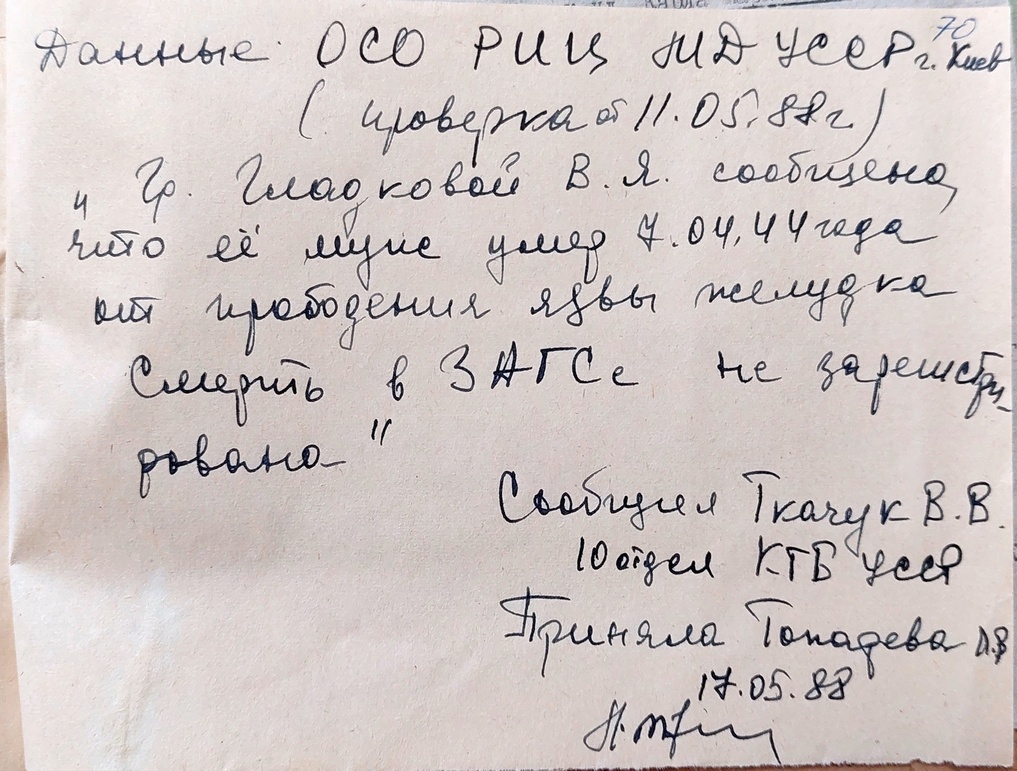 70
Данные ОСО РИЦ МВД УССР г. Киев
(проверка от 11.05.88г.)
„Гр. Гладковой В.Я. сообщено,
что её муж умер 7.04.44 года
от прободения язвы желудка
Смерть в ЗАГСе не зарегистри-
рована"
Сообщил Ткачук В.В.
10 отдел КГБ УССР
Приняла
17.05.88